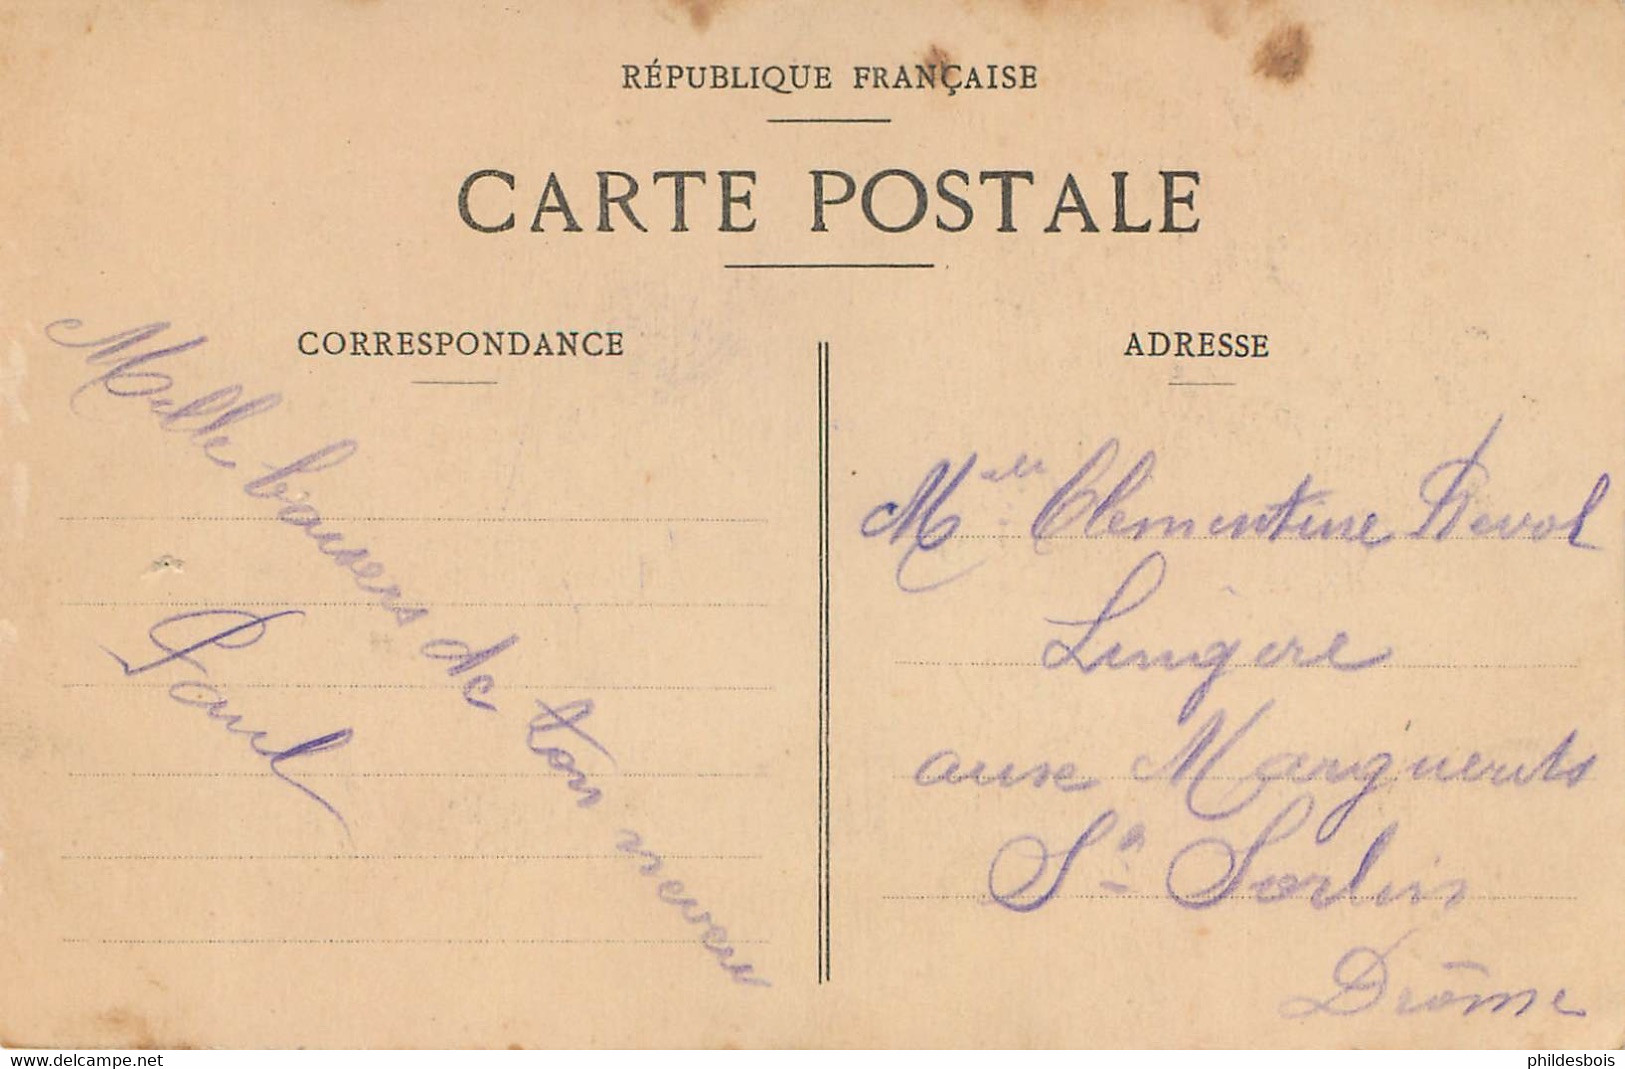 RÉPUBLIQUE FRANÇAISE
CARTE POSTALE
CORRESPONDANCE
Mille baisers de ton neveu
Paul
ADRESSE
Melle Clementine Revol
Lingere
aux Marguerits
St Sorlin
Drôme
www.delcampe.net
phildesbois